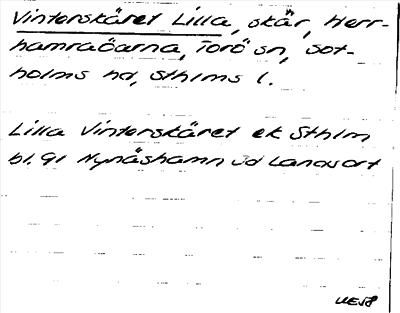 Vinterskäret Lilla, skär, Herr-
hamraöarna, Torö sn, Sot-
holms hd, Sthlms l.
Lilla Vinterskäret ek Sthlm
bl. 91 Nynäshamn Jd Landsort